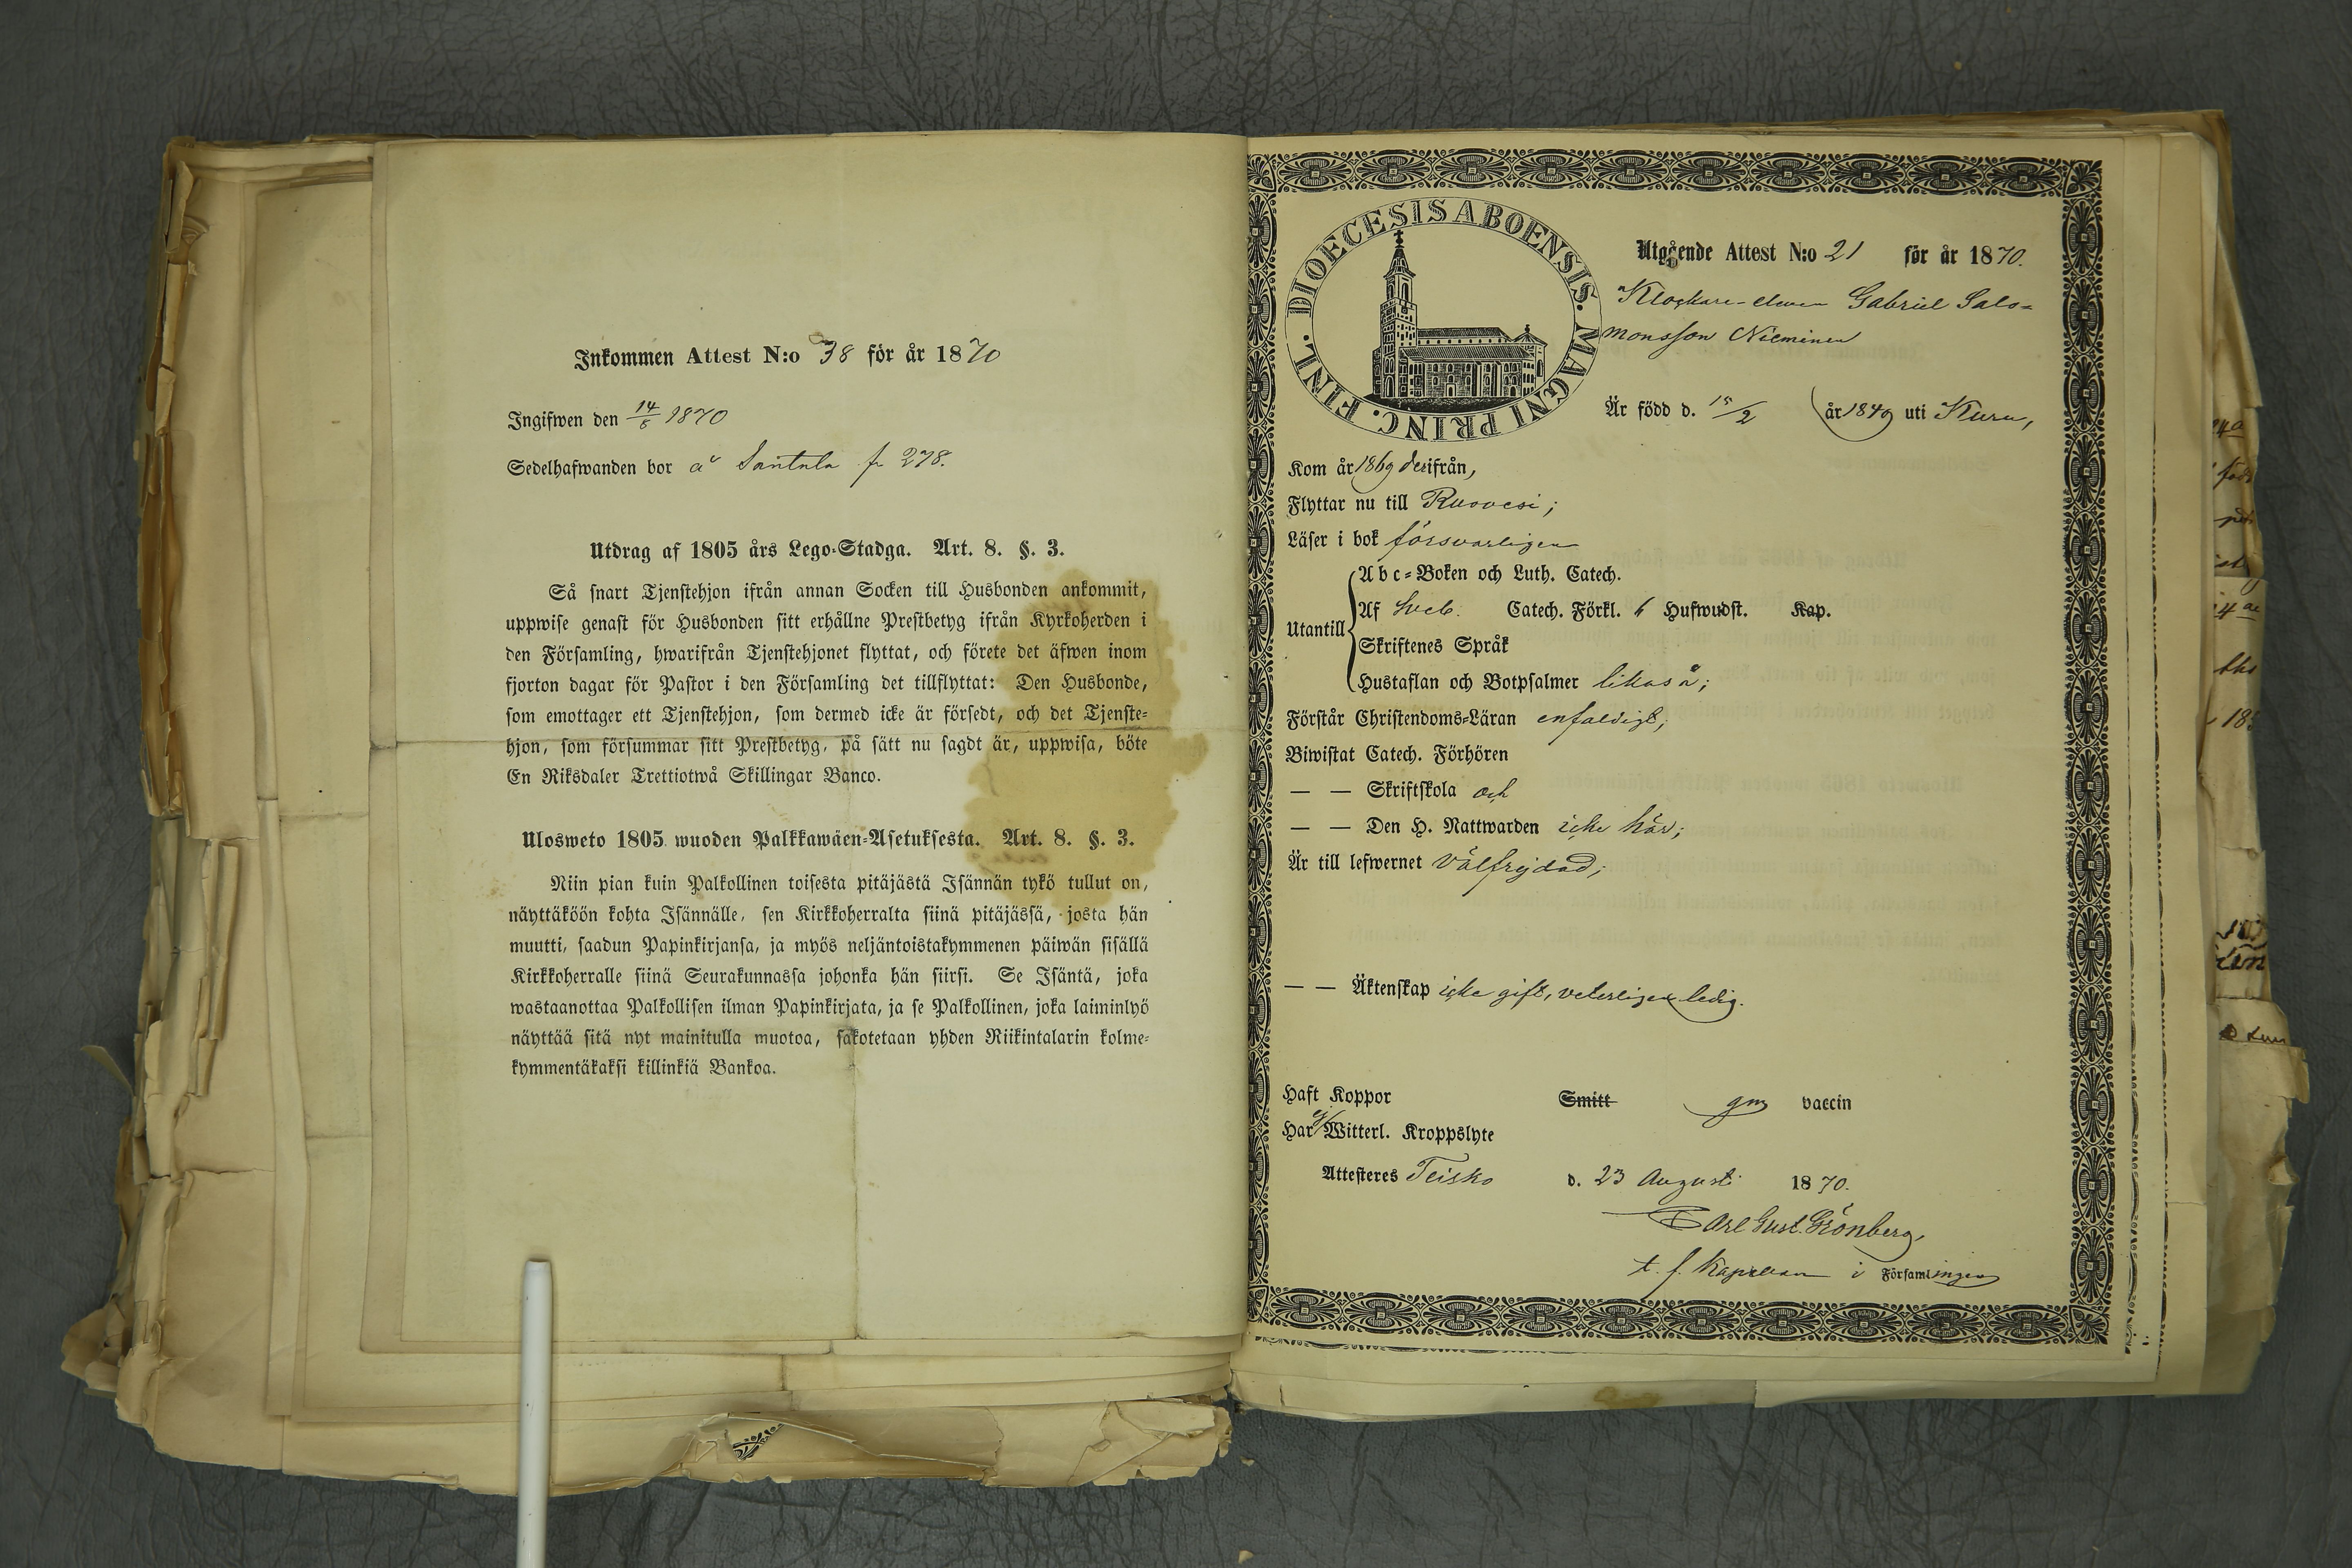 Inkommen Attest N:o 38 för år 1870
Ingifwen den 14/6 1870
Sedelhafwanden bor å Santala f 278.
Utdrag af 1805 års Lego-Stadga. Art. 8. §. 3.
Så snart Tjenstehjon ifrån annan Socken till Husbonden ankommit,
uppwise genast för Husbonden sitt erhållne Prestbetyg ifrån Kyrkoherden i
den Församling, hwarifrån Tjenstehjonet flyttat, och förete det äfwen inom
fjorton dagar för Pastor i den Församling det tillflyttat: Den Husbonde,
som emottager ett Tjenstehjon, som dermed icke är försedt, och det Tjenste-
hjon, som försummar sitt Prestbetyg, på sätt nu sagdt är, uppwisa, böte
En Riksdaler Trettiotwå Skillingar Banco.
Ulosweto 1805 wuoden Palkkawäen-Asetuksesta. Art. 8. §. 3.
Niin pian kuin Palkollinen toisesta pitäjästä Isännän tykö tullut on,
näyttäköön kohta Isännälle, sen Kirkkoherralta siinä pitäjässä, josta hän
muutti, saadun Papinkirjansa, ja myös neljäntoistakymmenen päiwän sisällä
Kirkkoherralle siinä Seurakunnassa johonka hän siirsi. Se Isäntä, joka
wastaanottaa Palkollisen ilman Papinkirjata, ja se Palkollinen, joka laiminlyö
näyttää sitä nyt mainitulla muotoa, sakotetaan yhden Riikintalarin kolme-
kymmentäkaksi killinkiä Bankoa.
DIOECESIS ABOENSIS. MAGNI PRINC. FINL.
Utgående Attest N:o 21 för år 1870.
Klockare-eleven Gabriel Salo=
monsson Nieminen
Är född d. 15/2 år 1849 uti Kuru,
Kom år 1869 derifrån,
Flyttar nu till Ruovesi;
Läser i bok försvarligen
Utantill
Abc=Boken och Luth. Catech.
Af Sveb. Catech. Förkl. 6 Hufwudst. Kap.
Skriftenes Språk
Hustaflan och Botpsalmer likaså;
Förstår Christendoms-Läran enfaldigt;
Biwistat Catech. Förhören
— — Skriftskola och
— — Den H. Nattwarden icke här;
Är till lefwernet välfrejdad;
— — Äktenskap icke gift, veterligen ledig.
Haft Koppor Smitt gm vaccin
Har ej Witterl. Kroppslyte
Attesteres Teisko d. 23 Augusti 1870.
Carl Gust. Grönberg,
t. f. Kapellan i Församlingen